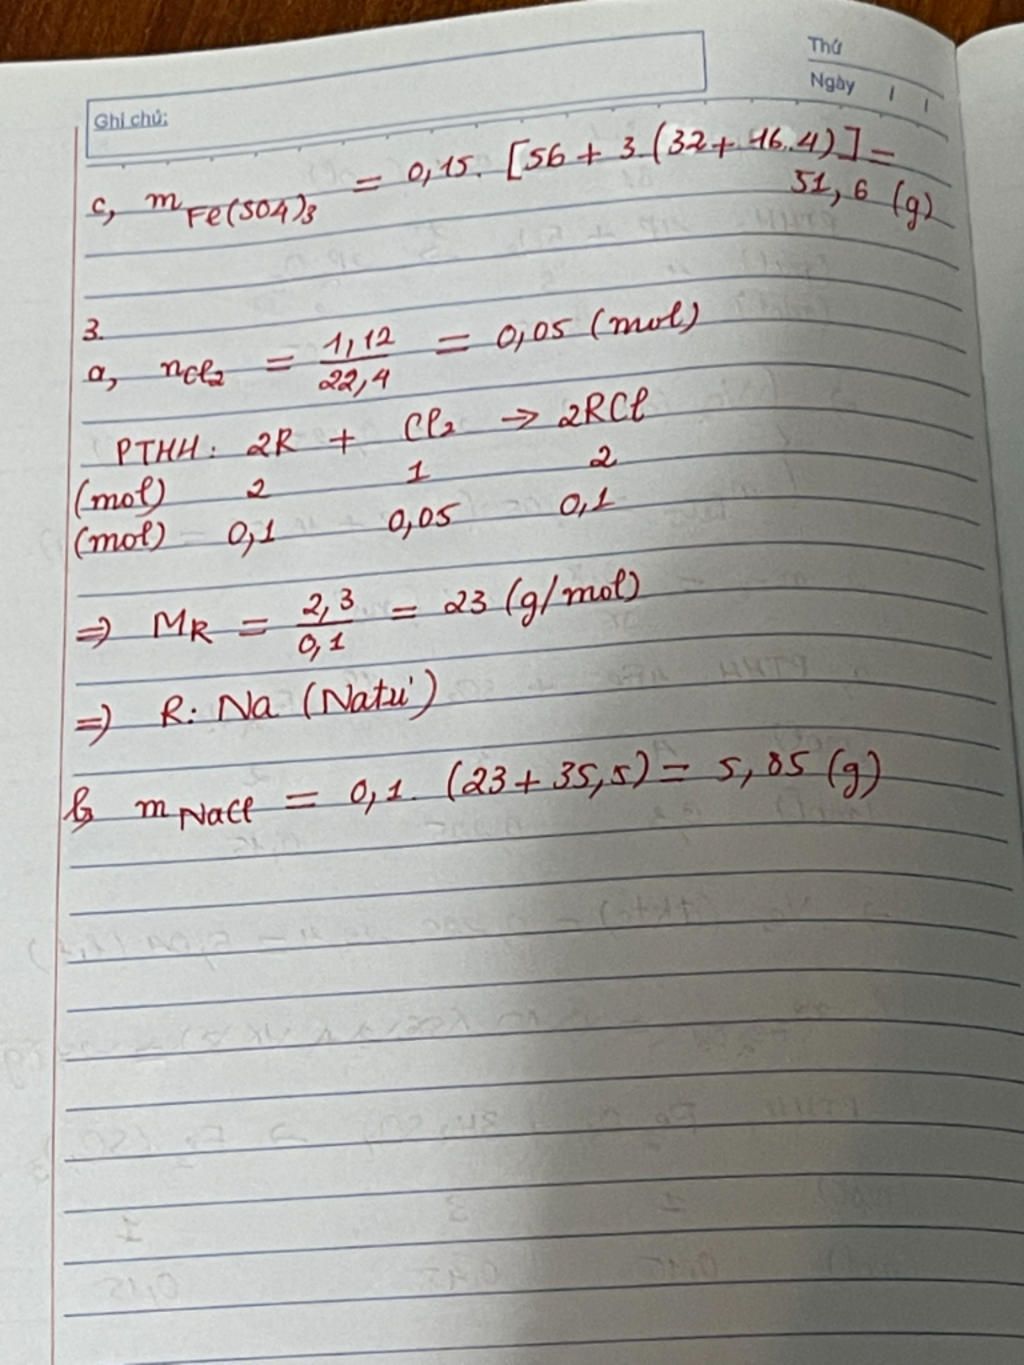 Thứ
Ngày / /
Ghi chú:
c, m Fe(SO4)3 = 0,15. [56 + 3.(32 + 16.4)] =
51,6 (g)
3.
a, nCl2 = 1,12/22,4 = 0,05 (mol)
PTHH: 2R + Cl2 → 2RCl
(mol) 2 1 2
(mol) 0,1 0,05 0,1
=> MR = 2,3/0,1 = 23 (g/mol)
=> R: Na (Natri)
b, m NaCl = 0,1. (23 + 35,5) = 5,85 (g)